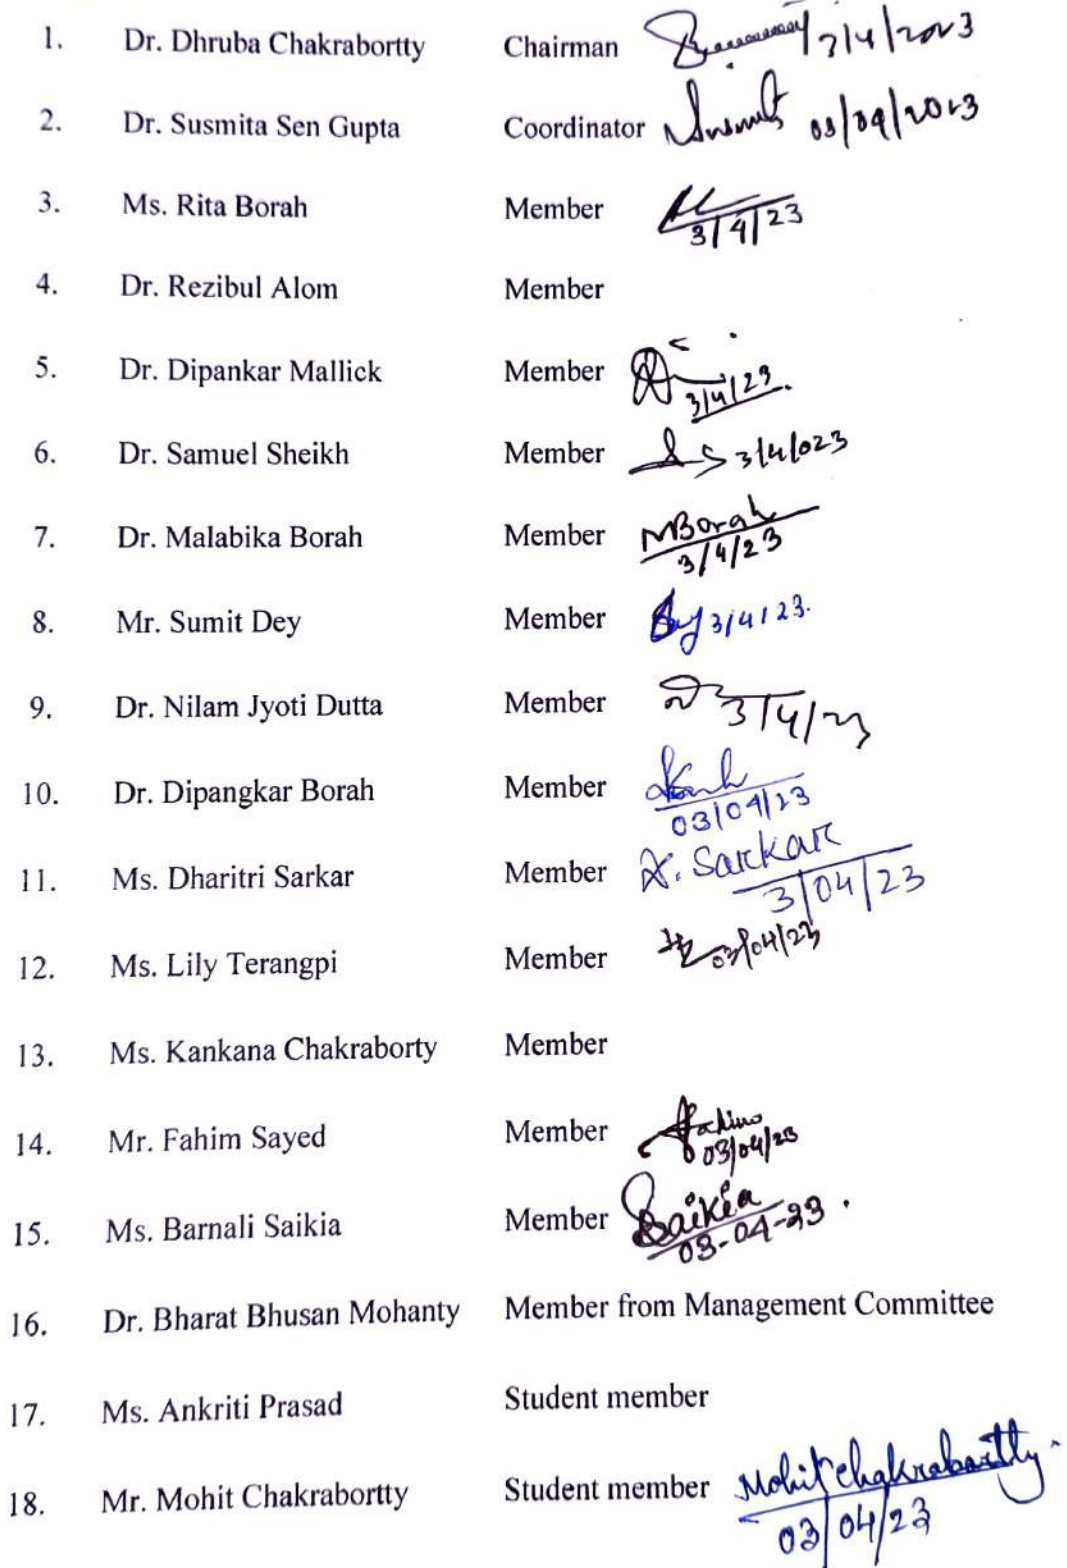 1. Dr. Dhruba Chakrabortty Chairman 3/4/2023
2. Dr. Susmita Sen Gupta Coordinator 03/04/2023
3. Ms. Rita Borah Member 3/4/23
4. Dr. Rezibul Alom Member
5. Dr. Dipankar Mallick Member 3/4/23.
6. Dr. Samuel Sheikh Member 3/4/023
7. Dr. Malabika Borah Member MBorah 3/4/23
8. Mr. Sumit Dey Member 3/4/23.
9. Dr. Nilam Jyoti Dutta Member 3/4/23
10. Dr. Dipangkar Borah Member 03/04/23
11. Ms. Dharitri Sarkar Member D. Sarkar 3/04/23
12. Ms. Lily Terangpi Member 03/04/23
13. Ms. Kankana Chakraborty Member
14. Mr. Fahim Sayed Member 03/04/23
15. Ms. Barnali Saikia Member BSaikia 03-04-23.
16. Dr. Bharat Bhusan Mohanty Member from Management Committee
17. Ms. Ankriti Prasad Student member
18. Mr. Mohit Chakrabortty Student member Mohit Chakrabortty 03/04/23